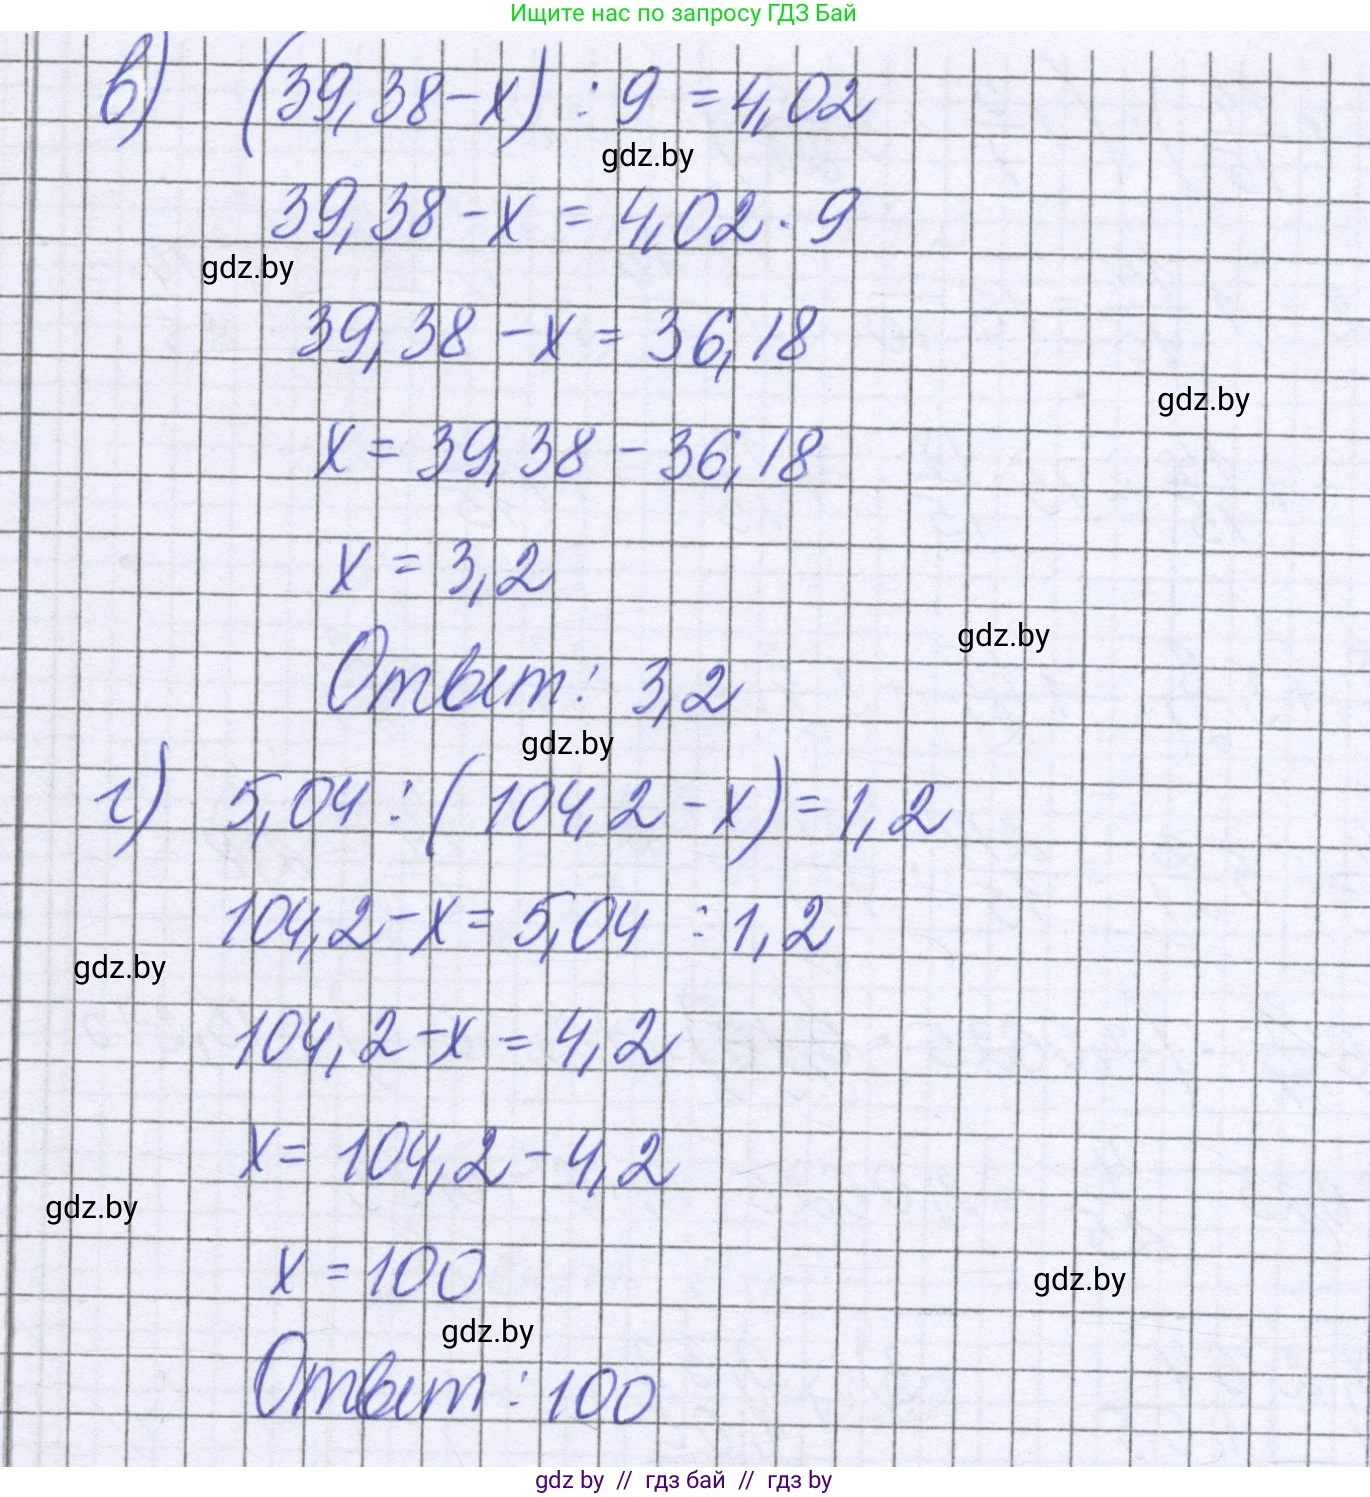 Ищите нас по запросу ГДЗ Бай
в) (39,38-x) : 9 = 4,02
gdz.by
39,38 - x = 4,02 · 9
gdz.by
39,38 - x = 36,18
gdz.by
x = 39,38 - 36,18
x = 3,2
gdz.by
Ответ: 3,2
gdz.by
г) 5,04 : (104,2 - x) = 1,2
104,2 - x = 5,04 : 1,2
gdz.by
104,2 - x = 4,2
x = 104,2 - 4,2
gdz.by
x = 100
gdz.by
gdz.by
Ответ : 100
gdz by // гдз бай // гдз by